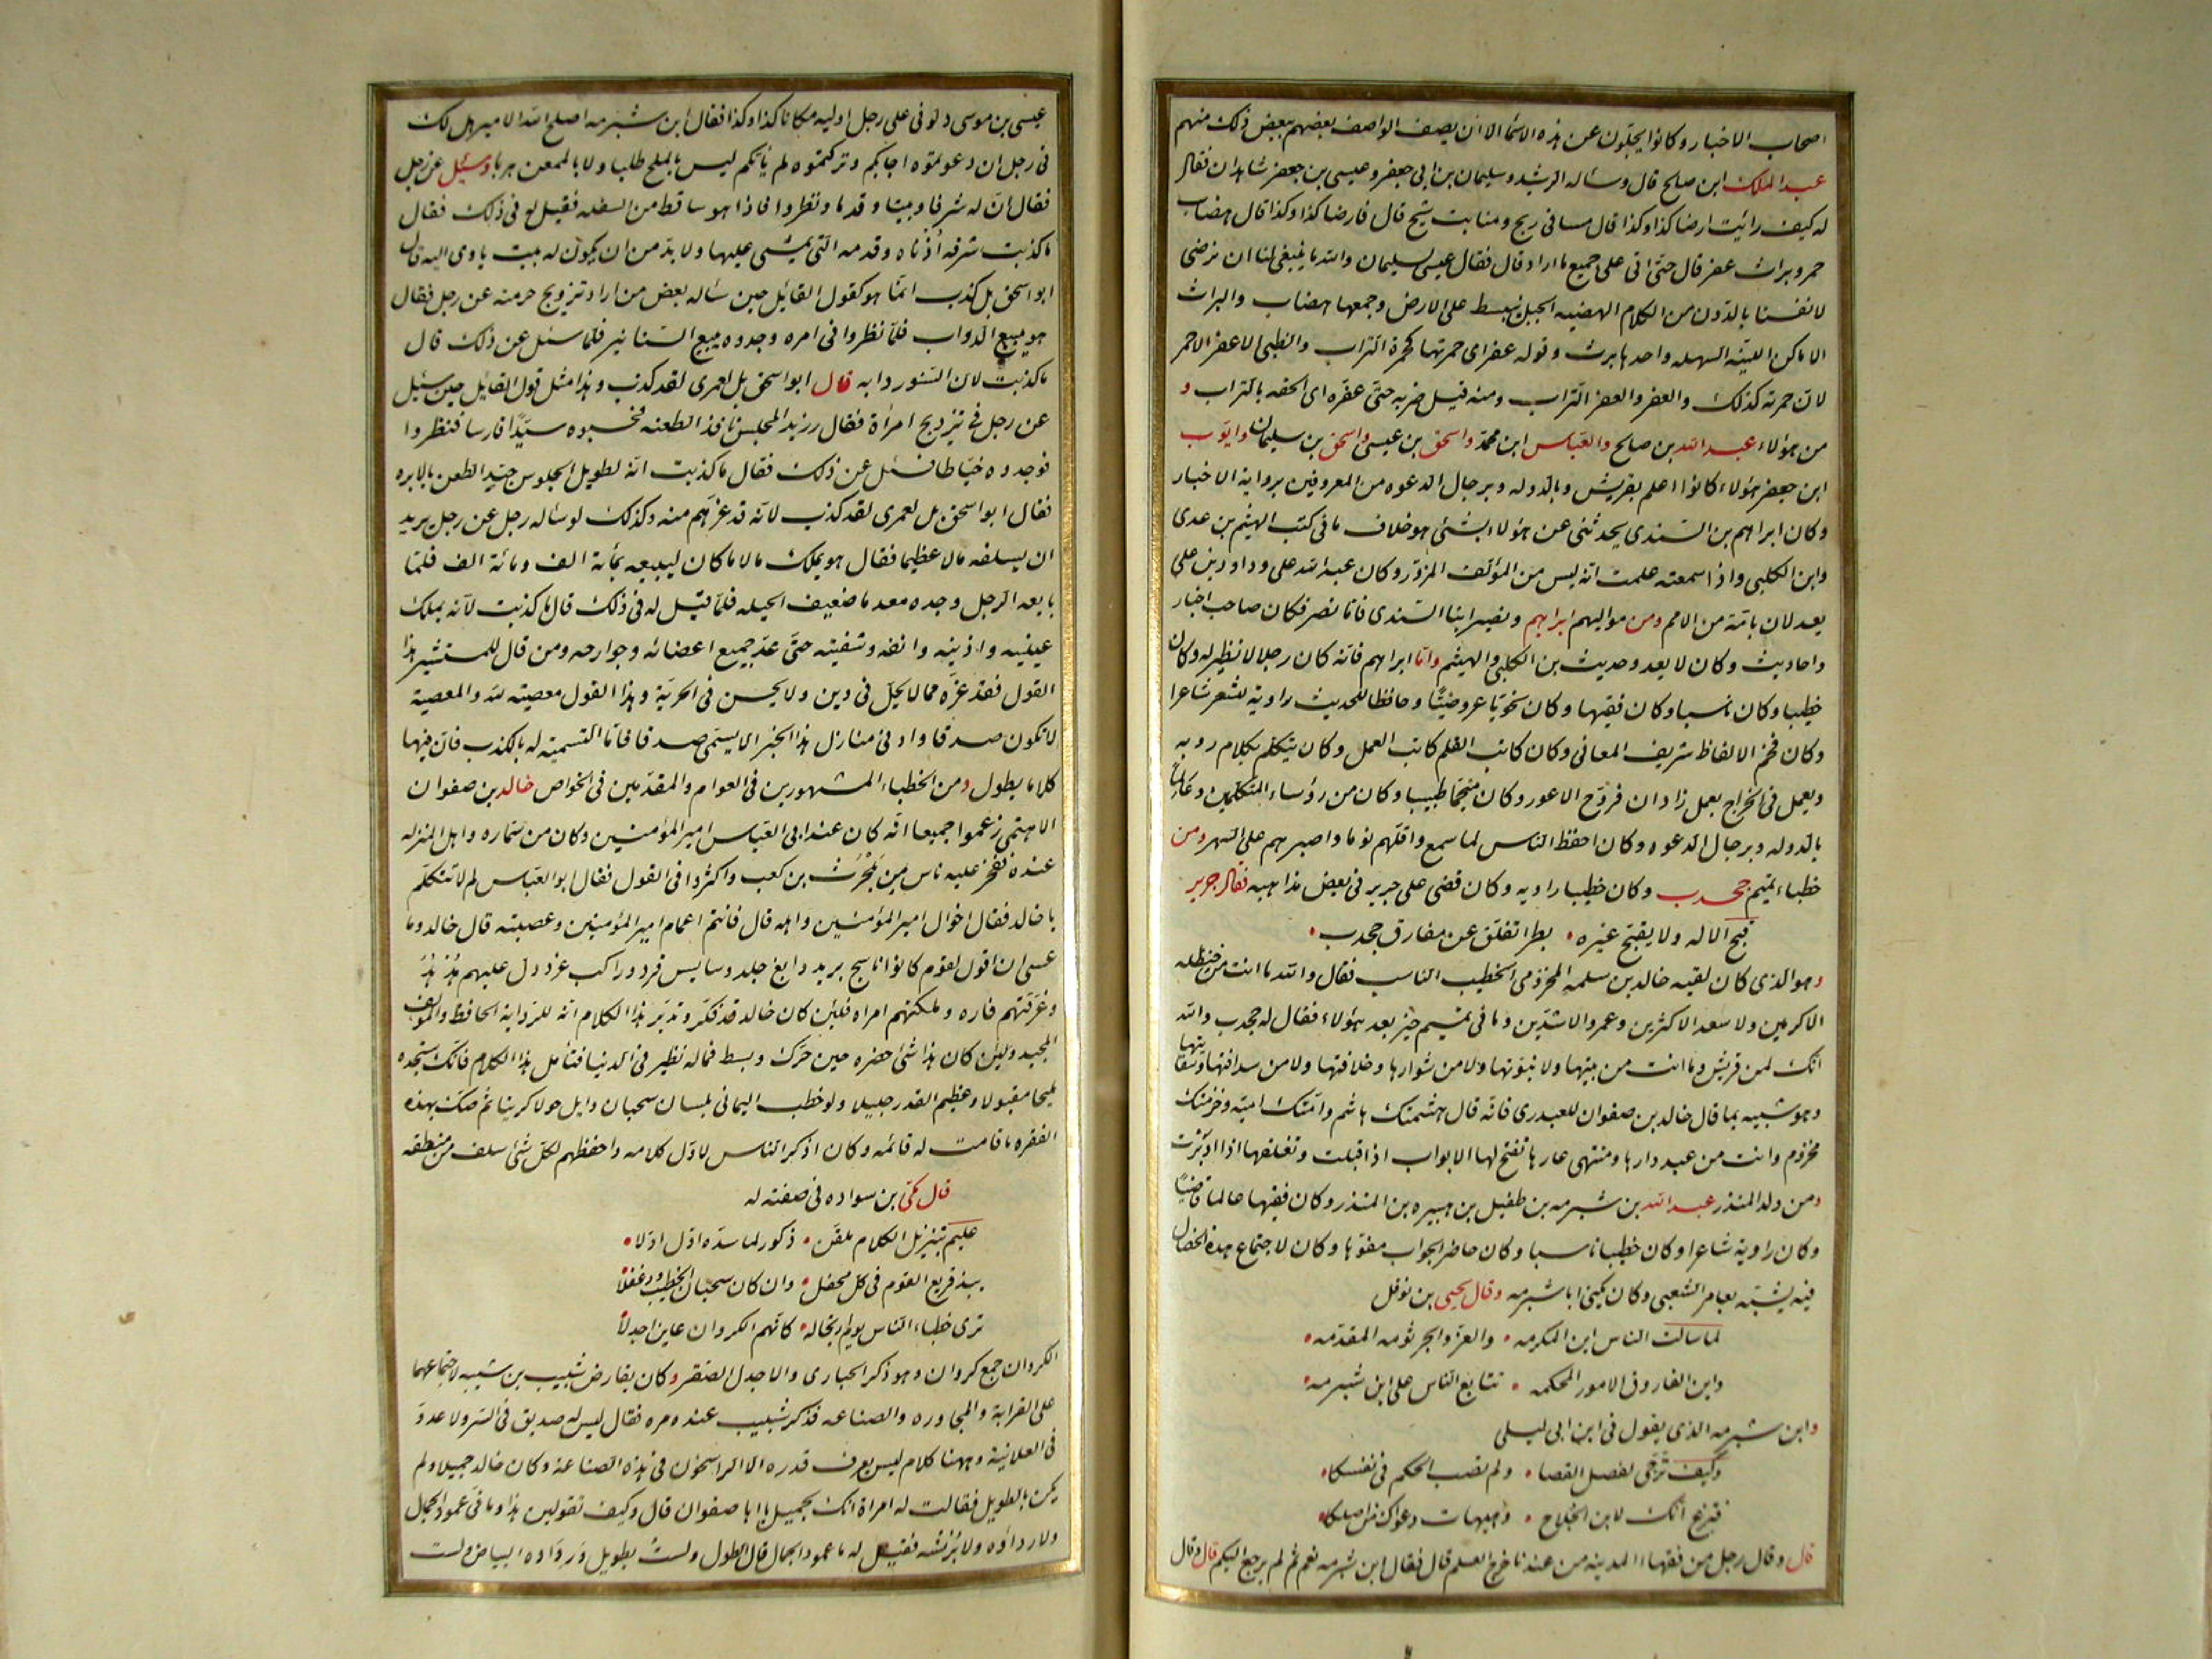 اصحاب الاخبار وكانوا يجلّون عن هذه الاسماء الا ان يصف الواصف بعضهم ببعض ذلك منهم
عبد الملك ابن صلح قال وسئاله الرشيد وسليمان بن ابى جعفر وعيسى بن جعفر شاهدان فقال
له كيف رايت ارضا كذا وكذا قال مسافى ريح ومنابت شيح قال فارضا كذا وكذا قال هضاب
حمر وبراث عفر قال حتى اتى على جميع ما اراد قال فقال عيسى لسليمان والله ما ينبغى لنا ان نرضى
لانفسنا بالدون من الكلام الهضبه الجبل ينبسط على الارض وجمعها هضاب والبراث
الاماكن اللينه السهله واحدها برث وقوله عفر اى حمرتها كحمرة التراب والظبى الاعفر الاحمر
لان حمرته كذلك والعفر والعفر التراب ومنه قيل ضربه حتى عفره اى الحقه بالتراب و
من هؤلاء عبد الله بن صالح والعباس ابن محمد واسحق بن عيسى واسحق بن سليمان وايوب
ابن جعفر هؤلاء كانوا اعلم بقريش وبالدوله وبرجال الدعوه من المعروفين برواية الاخبار
وكان ابراهيم بن السندى يحدثنى عن هؤلاء بشئ هو خلاف ما فى كتب الهيثم بن عدى
وابن الكلبى واذا سمعته علمت انه ليس من المؤلف المزور وكان عبد الله على وداود بن على
يعدلان بامة من الامم ومن مواليهم ابراهيم ونصر ابنا السندى فاما نصر فكان صاحب اخبار
واحاديث وكان لا يعد وحديث بن الكلبى والهيثم واما ابراهيم فانه كان رجلا لا نظير له وكان
خطيبا وكان ناسبا وكان فقيها وكان نحويا عروضيا وحافظا للحديث راوية للشعر شاعرا
وكان فخم الالفاظ شريف المعانى وكان كاتب القلم كاتب العمل وكان يتكلم بكلام روبه
ويعمل فى الخراج بعمل زاذان فروخ الاعور وكان منجما طبيبا وكان من رؤساء المتكلمين وعالما
بالدوله وبرجال الدعوه وكان احفظ الناس لما سمع واقلهم نوما واصبرهم على السهر ومن
خطباء تميم جحدب وكان خطيبا راويه وكان قضى على جرير فى بعض مذاهبه فقال جرير
قبح الاله ولا يقبح غيره • بظرا تفلق عن مفارق جحدب •
وهو الذى كان لقيه خالد بن سلمه المخزومى الخطيب الناسب فقال والله ما انت من حنظله
الاكرمين ولا سعد الاكثرين وعمرو الاشدين وما فى تميم خير بعد هؤلاء فقال له جحدب والله
انك لمن قريش وما انت من بيتها ولا نبوتها ولا من شوارها وخلافتها ولا من سدانتها وسقايتها
وهو شبيه بما قال خالد بن صفوان للعبدرى فانه قال هشمتك هاشم وامتك اميه وخزمتك
مخزوم وانت من عبد دارها ومنتهى عارها تفتح لها الابواب اذا قبلت وتغلقها اذا ادبرت
ومن ولد المنذر عبد الله بن شبرمه بن طفيل بن هبيره بن المنذر وكان فقيها عالما قاضيا
وكان راوية شاعرا وكان خطيبا ناسبا وكان حاضر الجواب مفوها وكان لاجتماع هذه الخصال
فيه يشبه بعامر الشعبى وكان يكنى ابا شبرمه وقال يحيى بن نوفل
لما سالت الناس اين المكرمه • والعز والجرثومه المقدمه •
واين الفاروق الامور المحكمه • تتابع الناس على ابن شبرمه •
وابن شبرمه الذى يقول فى ابن ابى ليلى
وكيف ترجى لفصل القضا • ولم تصب الحكم فى نفسكا •
فتزعم انك لابن الجلاح • وهيهات دعواك من اصلكا •
قال وقال رجل من فقهاء المدينه من عندنا خرج العلم قال فقال ابن شبرمه نعم ثم لم يرجع اليكم قال وقال
عيسى بن موسى دلونى على رجل اوليه مكانا كذا وكذا فقال ابن شبرمه اصلح الله الامير هل لك
فى رجل ان دعوتموه اجابكم وتركتموه لم ياتكم ليس بالملح طلبا ولا بالممعن هربا وسئل عن رجل
فقال ان له شرفا وبيتا وقدما ونظروا فاذا هو ساقط من السفله فقيل له فى ذلك فقال
ما كذبت شرفه اذناه وقدمه التى يمشى عليها ولا بد من ان يكون له بيت ياوى اليه قال
ابو اسحق بل كذب انما هو كقول القائل حين سئاله بعض من اراد تزويج حرمته عن رجل فقال
هو يبيع الدواب فلما نظروا فى امره وجدوه يبيع السنانير فلما سئل عن ذلك قال
ما كذبت لان السنور دابه قال ابو اسحق بل لعمرى لقد كذب وهذا مثل قول القائل حين سئل
عن رجل فى تزويج امراة فقال رزين المجلس نافذ الطعنه فحسبوه سيدا فارسا فنظروا
فوجدوه خياطا فسئل عن ذلك فقال ما كذبت انه لطويل الجلوس جيد الطعن بالابره
فقال ابو اسحق بل لعمرى لقد كذب لانه قد غرهم منه وكذلك لو سئاله رجل عن رجل يريد
ان يسلفه مالا عظيما فقال هو يملك مالا ما كان ليبيعه بمائة الف ومائة الف فلما
بايعه الرجل وجده معدما ضعيف الحيله فلما قيل له فى ذلك قال ما كذبت لانه يملك
عينيه واذنيه وانفه وشفتيه حتى عد جميع اعضائه وجوارحه ومن قال للمستشير هذا
القول فقد غره مما لا يحل فى دين ولا يحسن فى الحرية وهذا القول معصية لله والمعصية
لا تكون صدقا وادنى منازل هذا الخبر الا يسمى صدقا فاما التسمية له بالكذب فان فيها
كلاما يطول ومن الخطباء المشهورين فى العوام والمقدمين فى الخواص خالد بن صفوان
الاهتمى زعموا جميعا انه كان عند ابى العباس امير المؤمنين وكان من سماره واهل المنزله
عنده ففخر عليه ناس من بلحرث بن كعب واكثروا فى القول فقال ابو العباس لم لا تتكلم
يا خالد فقال اخوال امير المؤمنين واهله قال فانتم اعمام امير المؤمنين وعصبته قال خالد وما
عسى ان اقول لقوم كانوا ناسج برد ودابغ جلد وسايس قرد وراكب عرد دل عليهم هدهد
وغرقتهم فاره وملكتهم امراه فلئن كان خالد قد فكر وتدبر هذا الكلام انه للراوية الحافظ والمؤلف
المجيد ولئن كان هذا شئ حضره حين حرك وبسط فماله نظير فى الدنيا فتامل هذا الكلام فانك ستجده
مليحا مقبولا وعظيم القدر جليلا ولو خطب اليمانى بلسان سحبان وايل حولا كريتا ثم صك بهذه
الفقره ما قامت له قائمه وكان اذكر الناس لاول كلامه واحفظهم لكل شئ سلف من منطقه
قال مكى بن سواده فى صفته له
عليم بتنزيل الكلام ملقن • ذكور لما سده اول اولا •
يبذ قريع القوم فى كل محفل • وان كان سحبان الخطيب ودغفلا
ترى خطباء الناس يوم ارتجاله • كانهم الكروان عاين اجدلا
الكروان جمع كروان وهو ذكر الحبارى والاجدل الصقر وكان يقارض شبيب بن شيبه لاجتماعهما
على القرابة والمجاوره والصناعه فذكر شبيب عنده مره فقال ليس له صديق فى السر ولا عدو
فى العلانية وههنا كلام ليس يعرف قدره الا الراسخون فى هذه الصناعه وكان خالد جميلا ولم
يكن بالطويل فقالت له امراة انك لجميل يا ابا صفوان قال وكيف تقولين هذا وما فى عمود الجمال
ولا رداؤه ولا برنسه فقيل له ما عمود الجمال قال الطول ولست بطويل ورداؤه البياض ولست